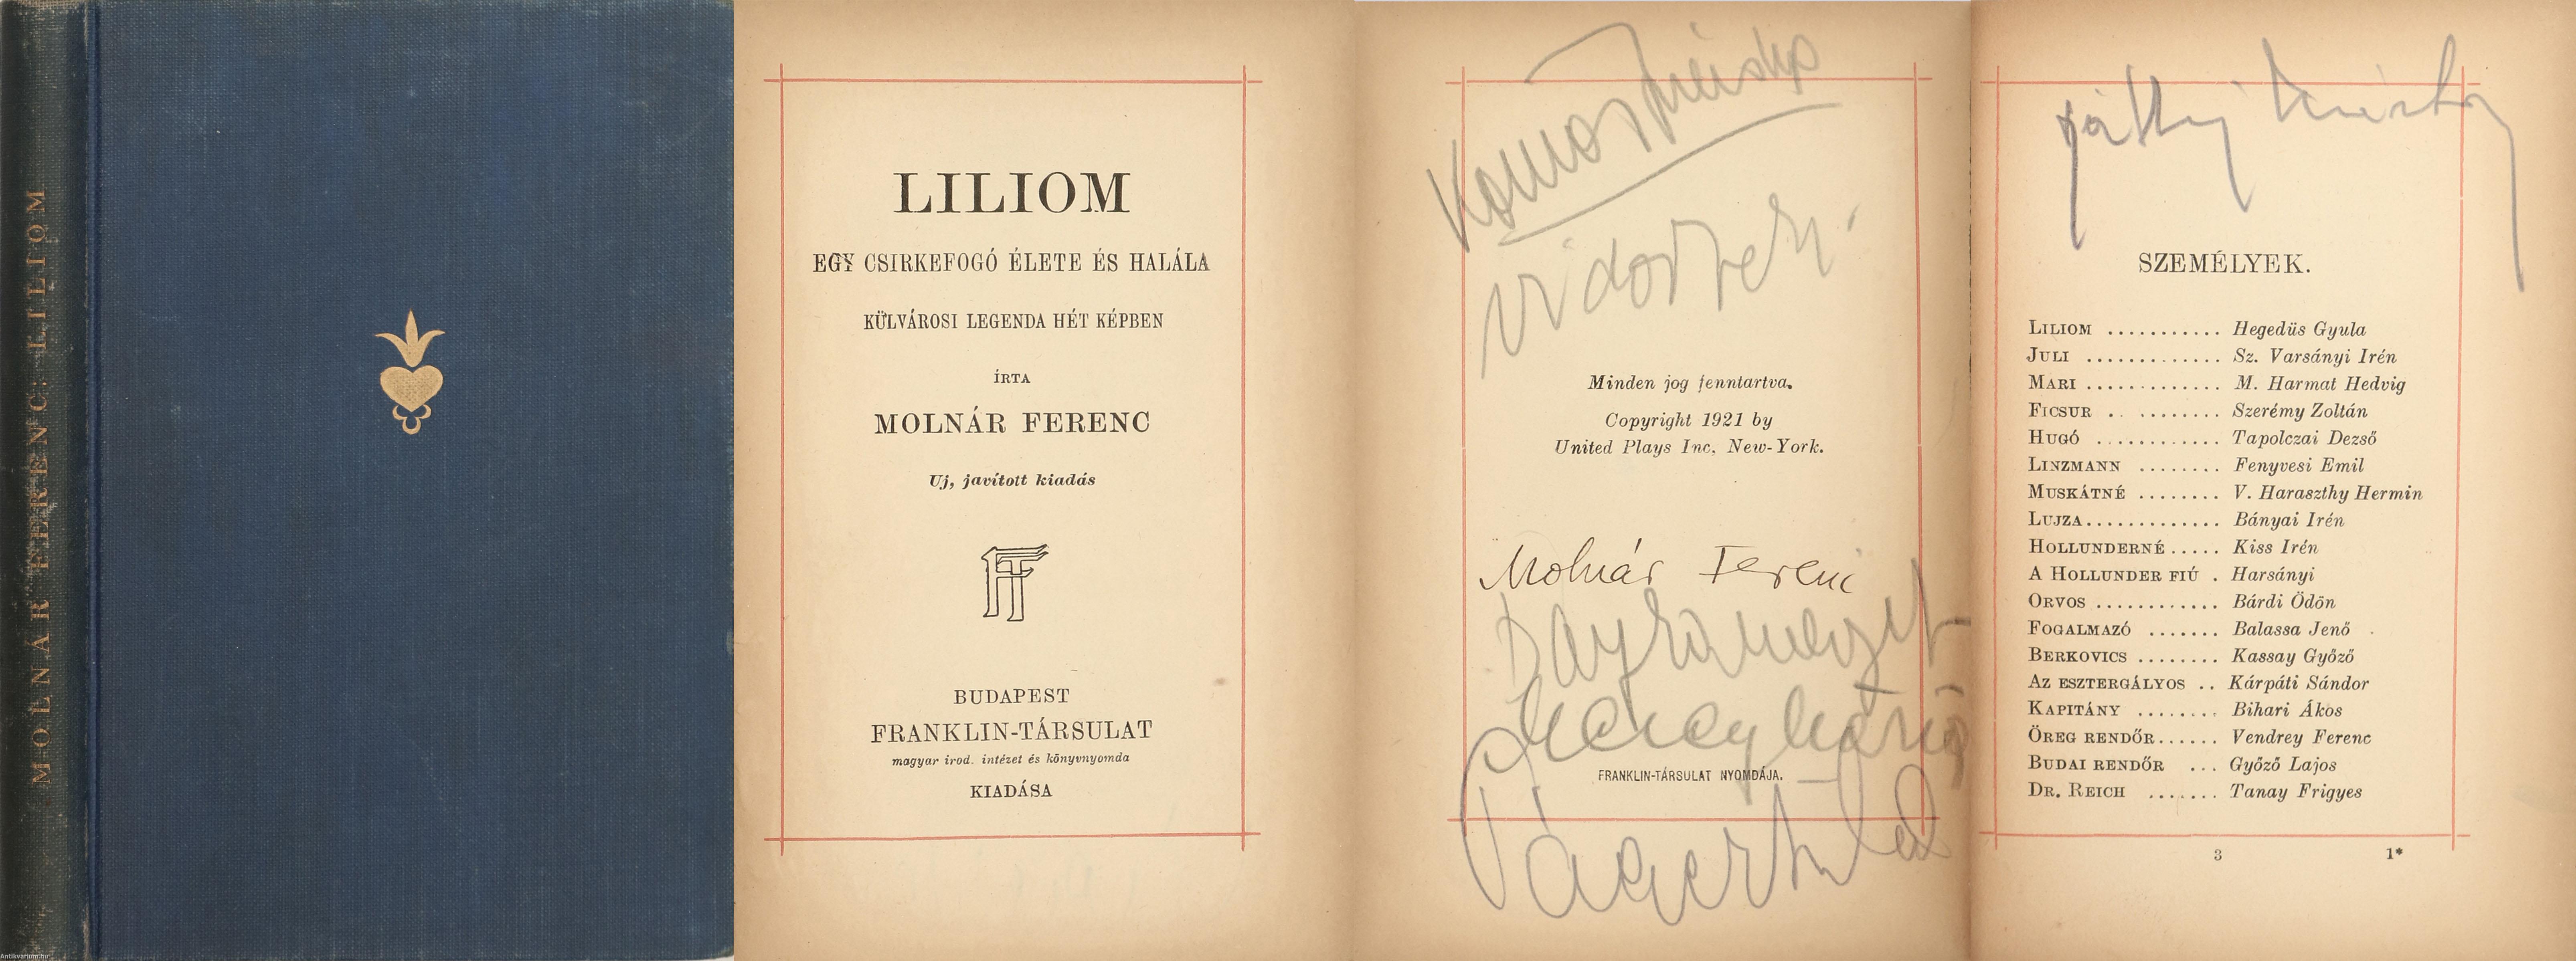 MOLNÁR FERENC: LILIOM
Antikvarium.hu
LILIOM
EGY CSIRKEFOGÓ ÉLETE ÉS HALÁLA
KÜLVÁROSI LEGENDA HÉT KÉPBEN
ÍRTA
MOLNÁR FERENC
Uj, javított kiadás
FT
BUDAPEST
FRANKLIN-TÁRSULAT
magyar irod. intézet és könyvnyomda
KIADÁSA
Minden jog fenntartva.
Copyright 1921 by
United Plays Inc, New-York.
Molnár Ferenc
FRANKLIN-TÁRSULAT NYOMDÁJA.
SZEMÉLYEK.
LILIOM ........... Hegedüs Gyula
JULI ............. Sz. Varsányi Irén
MARI ............. M. Harmat Hedvig
FICSUR .. ........ Szerémy Zoltán
HUGÓ ............ Tapolczai Dezső
LINZMANN ........ Fenyvesi Emil
MUSKÁTNÉ ........ V. Haraszthy Hermin
LUJZA............. Bányai Irén
HOLLUNDERNÉ ..... Kiss Irén
A HOLLUNDER FIÚ . Harsányi
ORVOS ............ Bárdi Ödön
FOGALMAZÓ ....... Balassa Jenő
BERKOVICS ........ Kassay Győző
AZ ESZTERGÁLYOS .. Kárpáti Sándor
KAPITÁNY ........ Bihari Ákos
ÖREG RENDŐR...... Vendrey Ferenc
BUDAI RENDŐR ... Győző Lajos
DR. REICH ....... Tanay Frigyes
3 1*